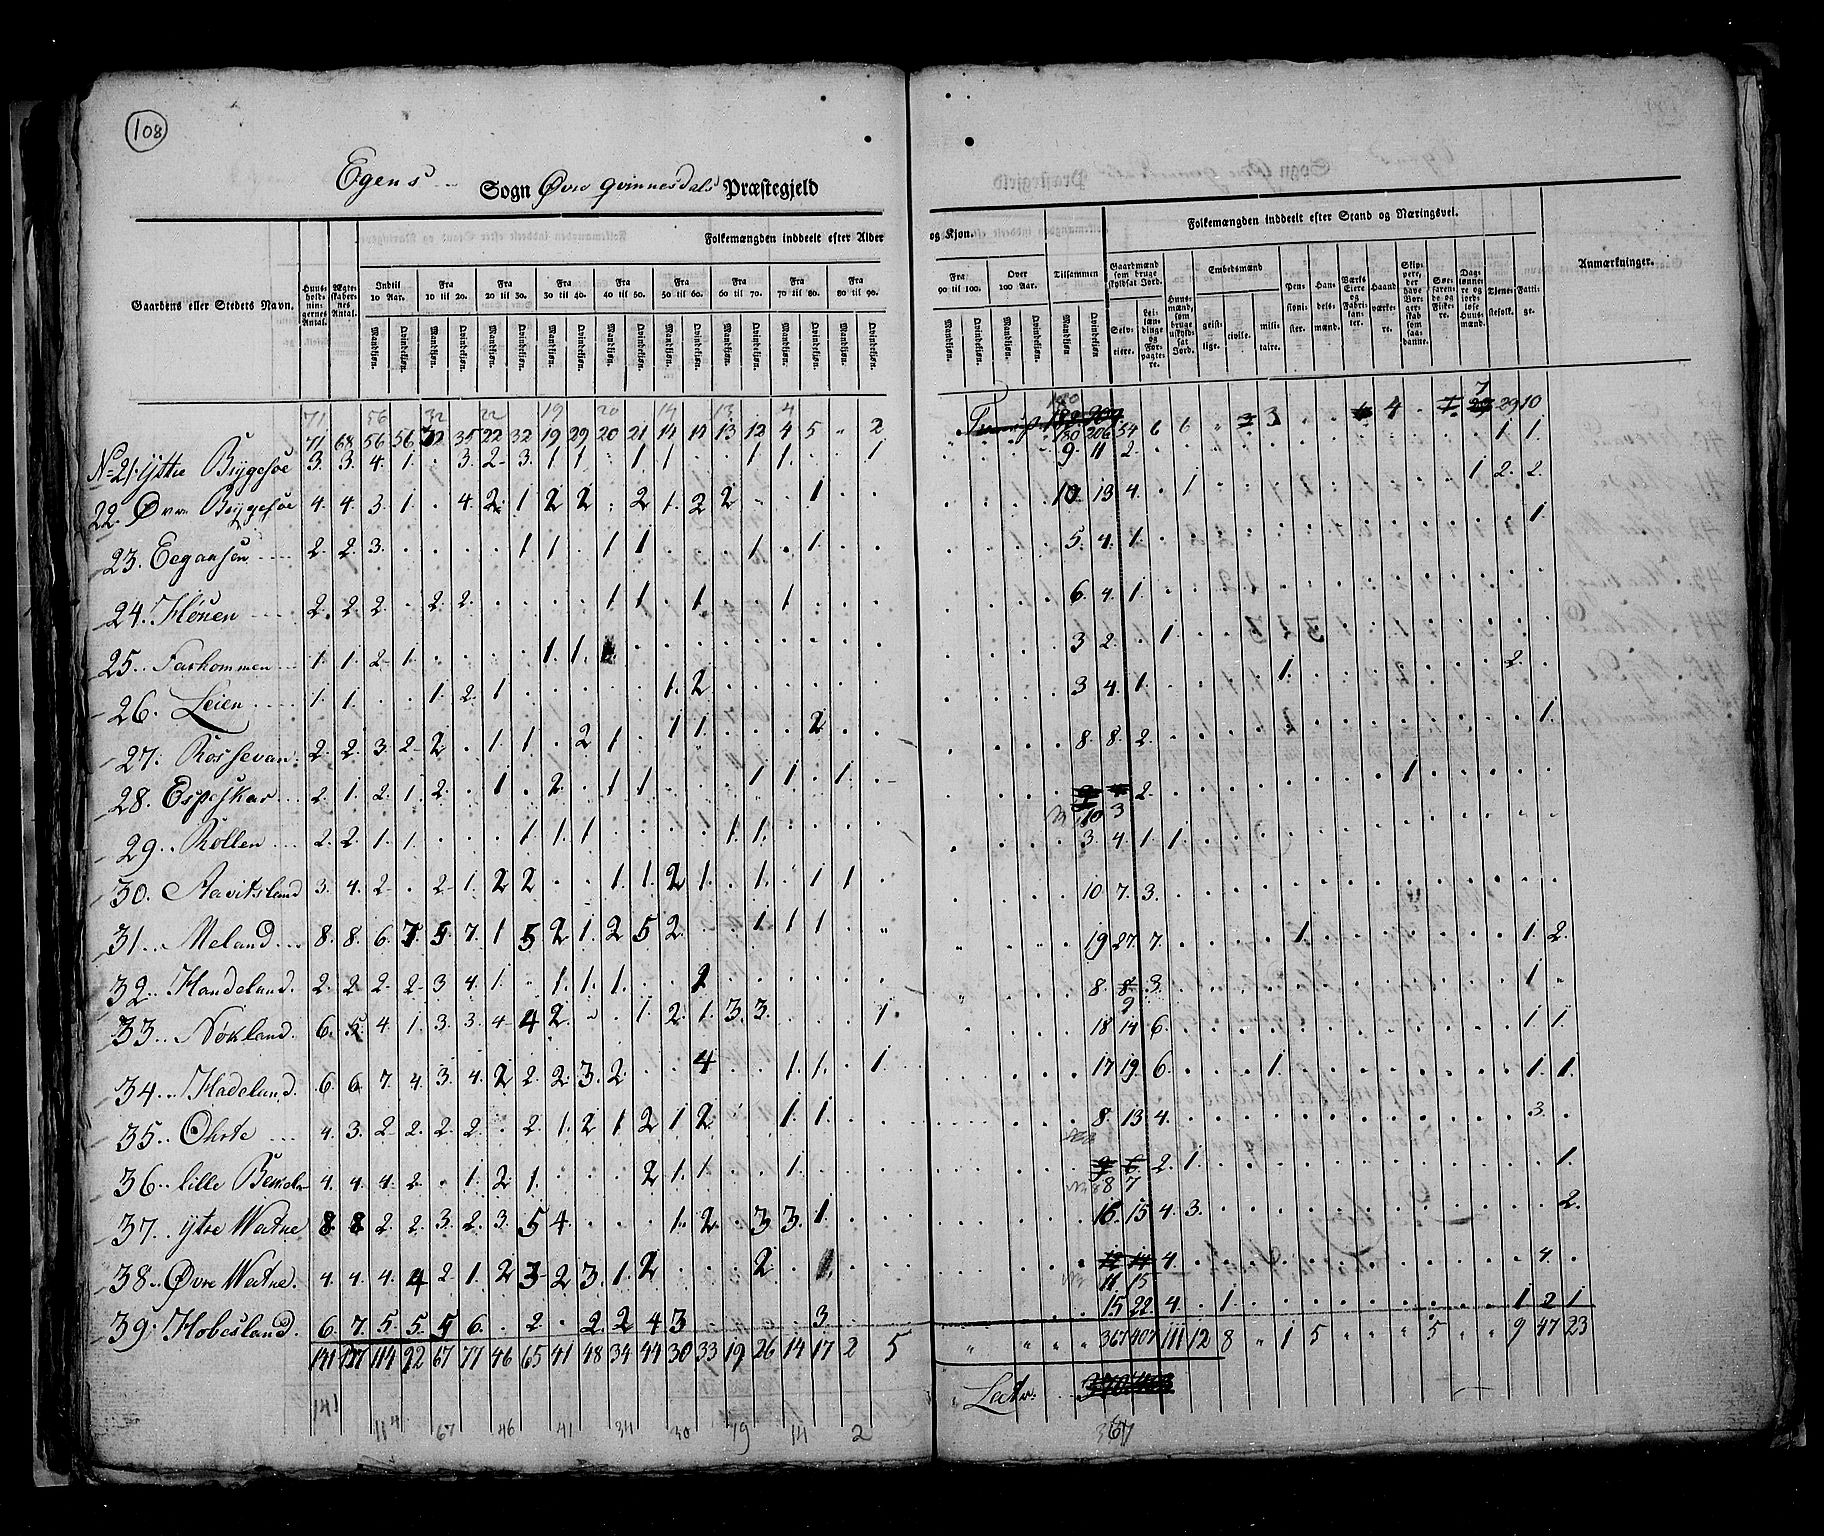 108
Egens Sogn Øvre Qvinnesdals Præstegjeld
Folkemængden inddeelt efter Alder og Kjøn.
Folkemængden inddeelt efter Stand og Næringsvei.
Anmærkninger.
Gaardens eller Stedets Navn. Huusholdningernes Antal. Ægteskabernes Antal. Indtil 10 Aar. Fra 10 til 20. Fra 20 til 30. Fra 30 til 40. Fra 40 til 50. Fra 50 til 60. Fra 60 til 70. Fra 70 til 80. Fra 80 til 90. Fra 90 til 100. Over 100 Aar. Tilsammen
Mandkjøn. Qvindekjøn.
Gaardmænd som bruge skyldsat Jord. Selveiere. Leilændinge og Forpagtere. Huusmænd, som bruge uskyldsat Jord. Embedsmænd geistlige. civile. militaire. Pensionister. Handelsmænd. Værks Eiere og Fabrikanter. Haandværkere. Skippere, der have Borgerskab som saadanne. Søefarende og Fiskere. Dagslønnere og jordløse Huusmænd. Tjenestefolk. Fattige.
71 56 32 22 19 20 14 13 4 180
71 68 56 56 32 35 22 32 19 29 20 21 14 14 13 12 4 5 " 2 180 206 54 6 6 " 3 4 7 29 10
No 21. Yttre Bÿgesøe 3. 3. 4. 1. . 3. 2. 3. 1. 1. . 1. 1. . . 1. 1. . . 1. 9. 11 2. 1. 1.
22. Øvre Bÿgesøe 4. 4. 3. 1. . 4. 2. 1 2 2. . 2 1. 2 2 . . 1. . . 10. 13 4. . 1 1. 2. 2.
23. Eegansøen 2. 2. 3. . . . . 1. 1. . 1. 1. . . . 1. . 1. . . 5. 4. 1. 1.
24. Hönen 2. 2. 2. . 2. 2. . . . . 1. 1. . 1. . . 1. . . . 6. 4. 1.
25. Farhommen 1. 1. 2. 1. . . . . 1. 1. 3 2. . 1.
26. Leien 1. 1. . . 1. 2. 1. . . . . . 1. 2. 3 4. 1. 1. 2.
27. Rossevan 2. 2. 3. 2. 2. . 1. 1. . 2 1. . 1. 1. . . . 2. 8. 8. 2. 1.
28. Espeskar 2. 1. 2. 1. 2. . 1. . 2. . 1. 1. . . . 1. 1. . 1. 10 3 2. 1.
29. Rollen 2. 2. 1. 1. . . . 1. 1. 1. . . . . 1. 1. 3. 4. 1 1.
30. Aavitsland 3. 4. 2. . 2. 1. 2 2. . . 1. 1. 2 1. . 1. . 1. 1. . 10. 7. 3.
31. Meland 8. 8. 6. 7. 5. 7. 1 5 2. 1. 2 5 2. . . 1. 1. 1. . " 19 27. 7. 1. 1. 2.
32. Handeland. 2. 2. 2. 2. 3 4. 1. . 1. 1. 1. . . 2. 8. 9 3. 1.
33. Nøkland. 6. 5. 4. 1. 3. 3. 4. 4 2. . . 1. 2. 1. 3. 3. . . . 1. 18 14 6. 1. 1.
34. Hadeland. 6. 6. 7. 4. 3. 4. 2 2. 2. 3. 2. . . 4 . . 1. 1. . 1. 17 19. 6. 1. 1. 1.
35. Ohrte 4. 3. 2. 2. 2. 2. . 2. 1. 2 1. 2 1. 2. . . 1. 1. 8. 13 4. 3.
36. lille 4. 4. 4. 2. . 1. 2. 1. . . . 2 1. 1. . . 1. 8 7 2. 1. 1.
37. ytre Watne 8. 8 2. 2. 3. 2. 3. 5 4. . . . 1. 2. . 3 3. 1. 16. 15 4. 3. 2.
38. Øvre Watne. 4. 4. 4. 4 2. 1. 2 3 2 3. 1. 2. . . . 2. . 1. 11 15 4. 4.
39. Hobesland. 6. 7. 5. 5. 5 6. . 2. . 2. 2 4 3 . . . . 3. 15. 22. 4. . 1. 1 2 1
141 137 114 92 67 77 46 65 41 48 34 44 30 33 19 26 14 17 2 5 " " " " 367 407 111 12 8 " 1 5 " " " 5 " " 9 47 23
Latr.
141 114 67 46 41 34 30 19 14 2 367